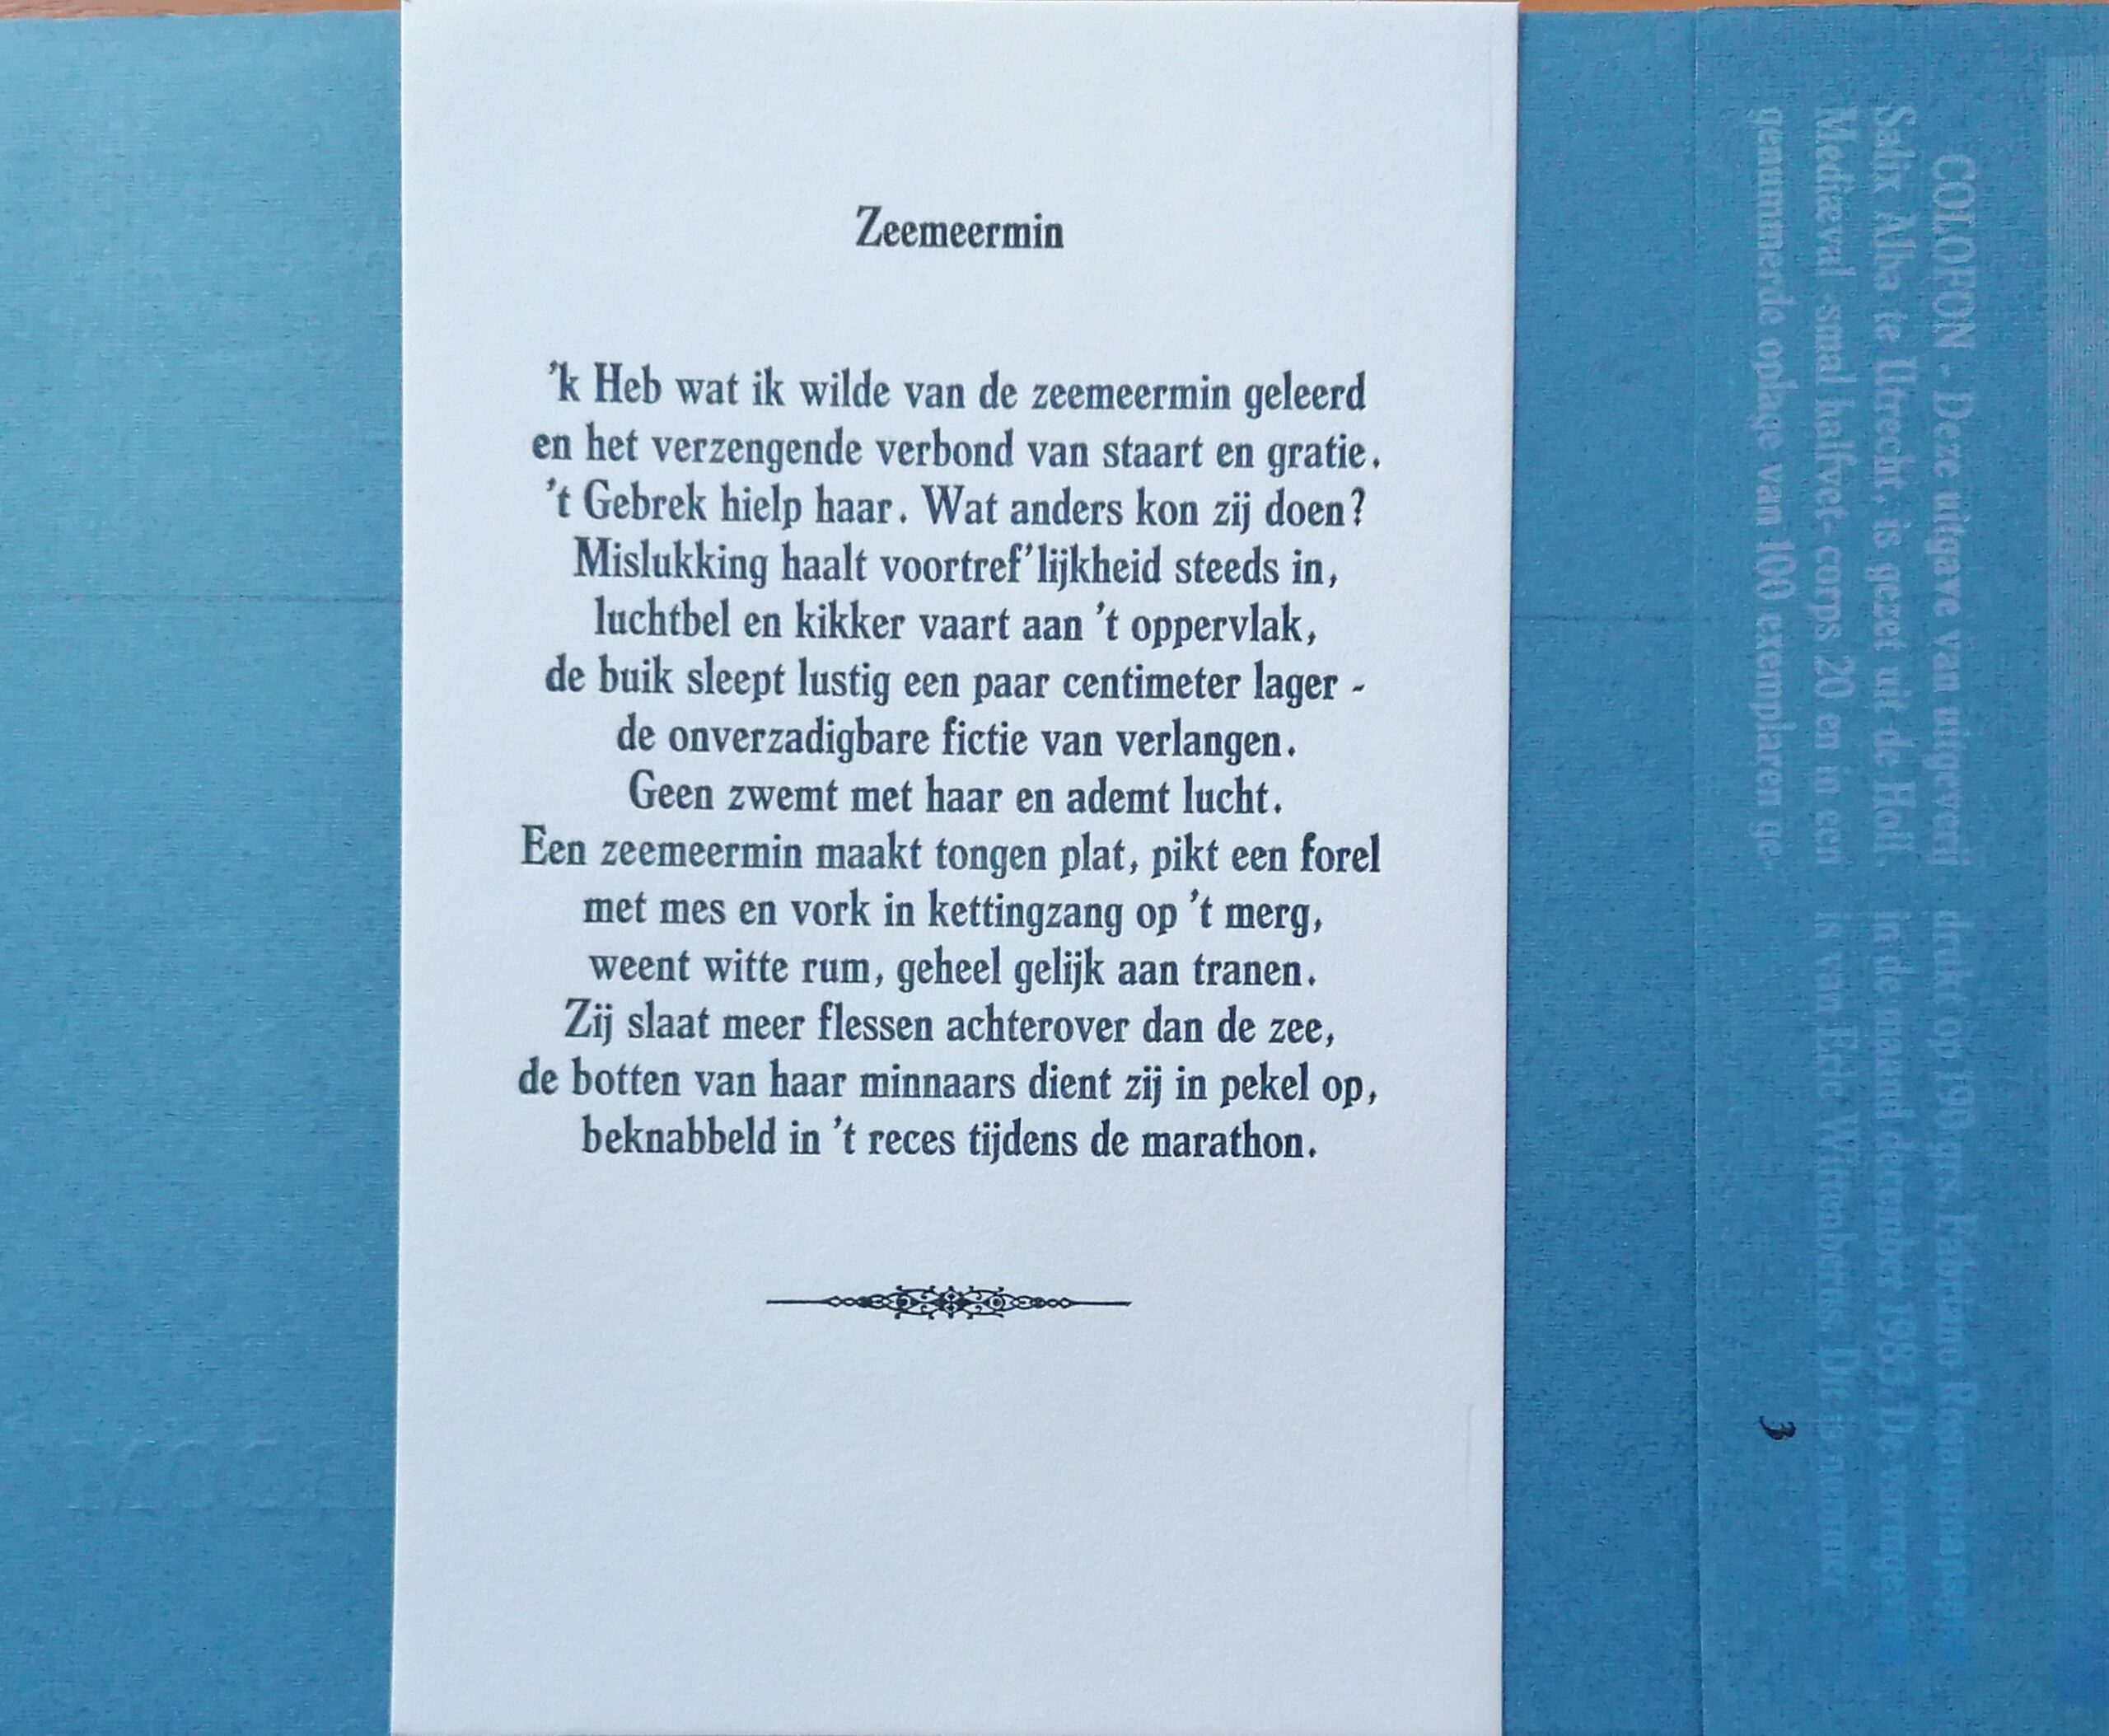 Zeemeermin
'k Heb wat ik wilde van de zeemeermin geleerd
en het verzengende verbond van staart en gratie.
't Gebrek hielp haar. Wat anders kon zij doen?
Mislukking haalt voortref'lijkheid steeds in,
luchtbel en kikker vaart aan 't oppervlak,
de buik sleept lustig een paar centimeter lager -
de onverzadigbare fictie van verlangen.
Geen zwemt met haar en ademt lucht.
Een zeemeermin maakt tongen plat, pikt een forel
met mes en vork in kettingzang op 't merg,
weent witte rum, geheel gelijk aan tranen.
Zij slaat meer flessen achterover dan de zee,
de botten van haar minnaars dient zij in pekel op,
beknabbeld in 't reces tijdens de marathon.
COLOFON - Deze uitgave van uitgeverij
Salix Alba te Utrecht, is gezet uit de Holl.
Mediæval smal halfvet- corps 20 en in een
genummerde oplage van 100 exemplaren ge-
drukt op 190 grs. Fabriano
in de maand december 1983. De
is van Eric Wittenberns. Dit is nummer
3